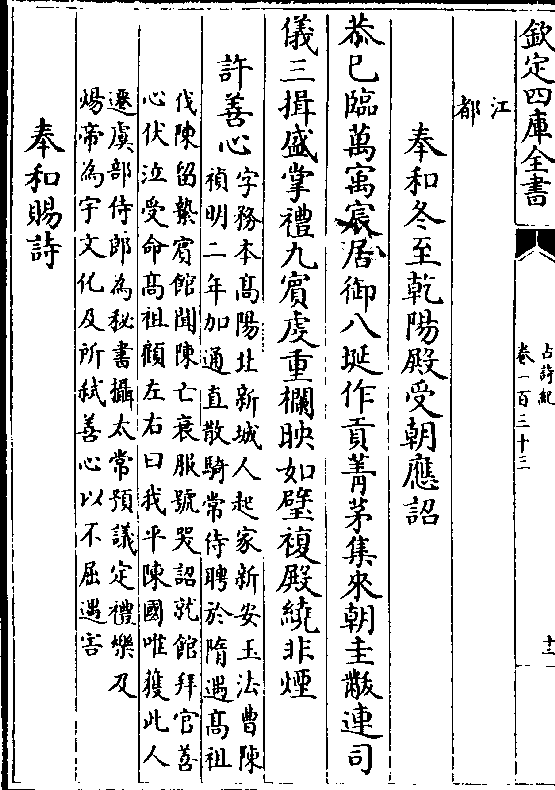 欽定四庫全書
古詩紀
卷一百三十二
十二
江
都
奉和冬至乾陽殿受朝應詔
恭已臨萬㝢宸居御八埏作貢菁茅集來朝圭黻連司
儀三揖盛掌禮九賔䖍重欄映如璧複殿繞非煙
許善心字務本髙陽北新城人起家新安王法曹陳
禎明二年加通直散騎常侍聘於隋遇髙祖
伐陳留縶賓館聞陳亡衰服號哭詔就館拜官善
心伏泣受命髙祖顧左右曰我平陳國唯獲此人
遷虞部侍郎為秘書攝太常預議定禮樂及
煬帝為宇文化及所弒善心以不屈遇害
奉和賜詩